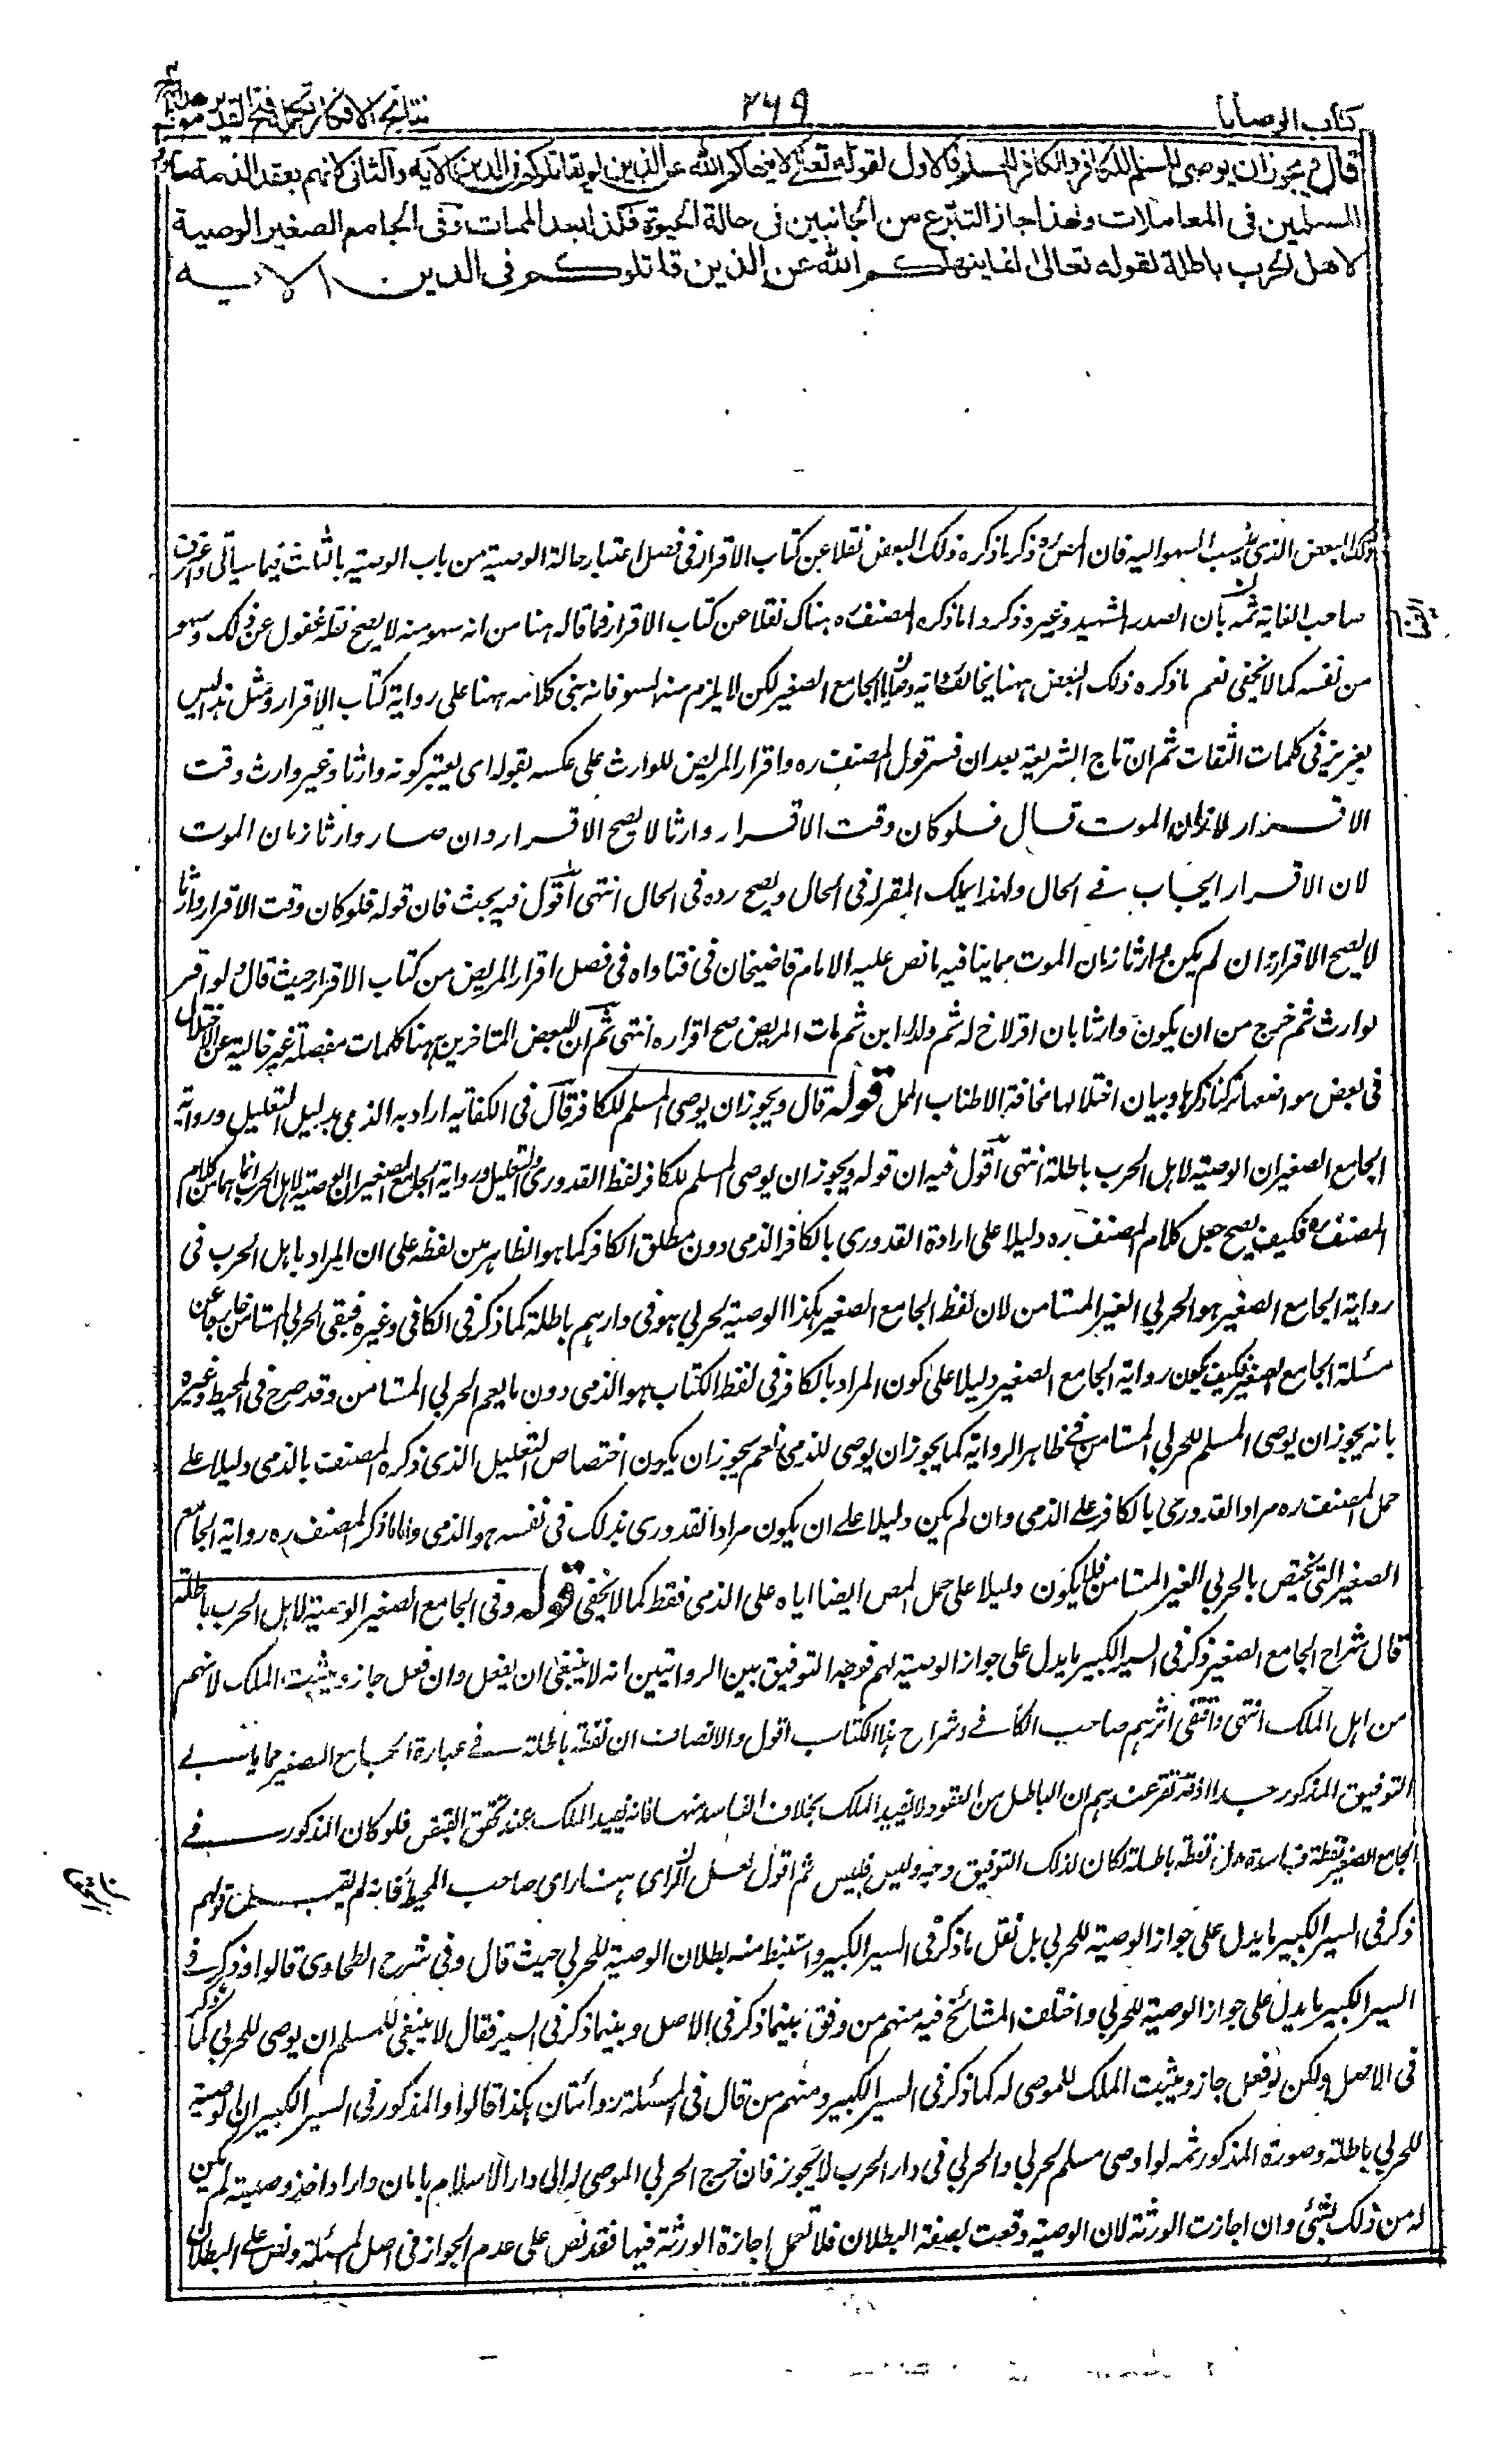 كتاب الوصايا
٢٦٩
نتائج الافكار تكملة فتح القدير
قال ويجوز ان يوصى المسلم للكافر والكافر للمسلم فالاول لقوله تعالى لا ينهاكم الله عن الذين لم يقاتلوكم فى الدين الآية والثانى لانهم بعقد الذمة ساووا
المسلمين فى المعاملات ولهذا جاز التبرع من الجانبين فى حالة الحيوة فكذا بعد الممات وفى الجامع الصغير الوصية
لاهل الحرب باطلة لقوله تعالى انما ينهاكم الله عن الذين قاتلوكم فى الدين الاية
ذلك البعض الذى ينسب السهو اليه فان المص ره ذكر ما ذكره ذلك البعض نقلا عن كتاب الاقرار فى فصل اعتبار حالة الوصية من باب الوصية بالثلث فيما سياتى واعترف
صاحب الغاية ثمه بان الصدر الشهيد وغيره ذكروا ما ذكره المصنف ره هناك نقلا عن كتاب الاقرار فما قاله هنا من انه سهو منه لا يصح نقله غفول عن ذلك وسهو
من نفسه كما لا يخفى نعم ما ذكره ذلك البعض ههنا يخالف الجامع الصغير لكن لا يلزم منه السهو فانه بنى كلامه ههنا على رواية كتاب الاقرار ومثل هذا ليس
بعزيز فى كلمات الثقات ثم ان تاج الشريعة بعد ان فسر قول المصنف ره واقرار المريض للوارث على عكسه بقوله اى يعتبر كونه وارثا وغير وارث وقت
الاقرار لا زمان الموت قال فلو كان وقت الاقرار وارثا لا يصح الاقرار وان صار وارثا زمان الموت
لان الاقرار ايجاب فے الحال ولهذا يملك المقر له فى الحال ويصح رده فى الحال انتهى اقول فيه بحث فان قوله فلو كان وقت الاقرار وارثا
لا يصح الاقرار وان لم يكن وارثا زمان الموت مما ينافيه ما نص عليه الامام قاضيخان فى فتاواه فى فصل اقرار المريض من كتاب الاقرار حيث قال ولو اقر
لوارث ثم خرج من ان يكون وارثا بان اقر لاخ له ثم ولد له ابن ثم مات المريض صح اقراره انتهى ثم ان لبعض المتاخرين ههنا كلمات مفصلة غير خالية عن الاختلال
فى بعض مواضعها تركنا ذكرها وبيان اختلالها مخافة الاطناب الممل قوله قال ويجوز ان يوصى المسلم للكافر قال فى الكفاية اراد به الذمى بدليل التعليل ورواية
الجامع الصغير ان الوصية لاهل الحرب باطلة انتهى اقول فيه ان قوله ويجوز ان يوصى المسلم للكافر لفظ القدورى والتعليل ورواية الجامع الصغير ان الوصية لاهل الحرب انما هما من كلام
المصنف ره فكيف يصح جعل كلام المصنف ره دليلا على ارادة القدورى بالكافر الذمى دون مطلق الكافر كما هو الظاهر من لفظه على ان المراد باهل الحرب فى
رواية الجامع الصغير هو الحربي الغير المستامن لان لفظ الجامع الصغير هكذا الوصية لحربي هو فى دارهم باطلة كما ذكر فى الكافى وغيره فبقى الحربي المستامن خارجا عن
مسئلة الجامع الصغير فكيف يكون رواية الجامع الصغير دليلا على كون المراد بالكافر فى لفظ الكتاب هو الذمى دون ما يعم الحربي المستامن وقد صرح فى المحيط وغيره
بانه يجوز ان يوصى المسلم للحربي المستامن فى ظاهر الرواية كما يجوز ان يوصى للذمى نعم يجوز ان يكون اختصاص التعليل الذى ذكره المصنف بالذمى دليلا على
حمل المصنف ره مراد القدورى بالكافر على الذمى وان لم يكن دليلا على ان يكون مراد القدورى بذلك فى نفسه هو الذمى واما ما ذكر المصنف ره رواية الجامع
الصغير التى تختص بالحربي الغير المستامن فلا يكون دليلا على حمل المص ايضا اياه على الذمى فقط كما لا يخفى قوله وفى الجامع الصغير الوصية لاهل الحرب باطلة
قال شراح الجامع الصغير ذكر فى السير الكبير ما يدل على جواز الوصية لهم فوجه التوفيق بين الروايتين انه لا ينبغى ان يفعل وان فعل جاز ويثبت الملك لانهم
من اهل الملك انتهى واقتفى اثرهم صاحب الكافے وشراح هذا الكتاب اقول والانصاف ان لفظة باطلة فے عبارة الجامع الصغير مما يابى
التوفيق المذكور جدا اذ قد تقرر عندهم ان الباطل من العقود لا يفيد الملك بخلاف الفاسد منها فانه يفيد الملك عند تحقق القبض فلو كان المذكور فے
الجامع الصغير لفظة فاسدة بدل لفظة باطلة لكان لذلك التوفيق وجه وليس فليس ثم اقول لعل الراى هنا راى صاحب المحيط فانه لم يقبل من قولهم
ذكر فى السير الكبير ما يدل على جواز الوصية للحربي بل نقل ما ذكر فى السير الكبير واستنبط منه بطلان الوصية للحربي حيث قال وفى شرح الطحاوى قالوا وذكر فے
السير الكبير ما يدل على جواز الوصية للحربي واختلف المشائخ فيه منهم من وفق بينما ذكر فى الاصل وبينما ذكر فى السير فقال لا ينبغى للمسلم ان يوصى للحربي كما ذكر
فى الاصل ولكن لو فعل جاز ويثبت الملك للموصى له كما ذكر فى السير الكبير ومنهم من قال فى المسئلة روايتان هكذا قالوا والمذكور فى السير الكبير ان الوصية
للحربي باطلة وصورة المذكور ثمه لو اوصى مسلم لحربي والحربي فى دار الحرب لا يجوز فان خرج الحربي الموصى له الى دار الاسلام بامان واراد اخذ وصيته لم يكن
له من ذلك شئى وان اجازت الورثة لان الوصية وقعت بصفة البطلان فلا تعمل اجازة الورثة فيها فقد نص على عدم الجواز فى اصل المسئلة ونص على البطلان